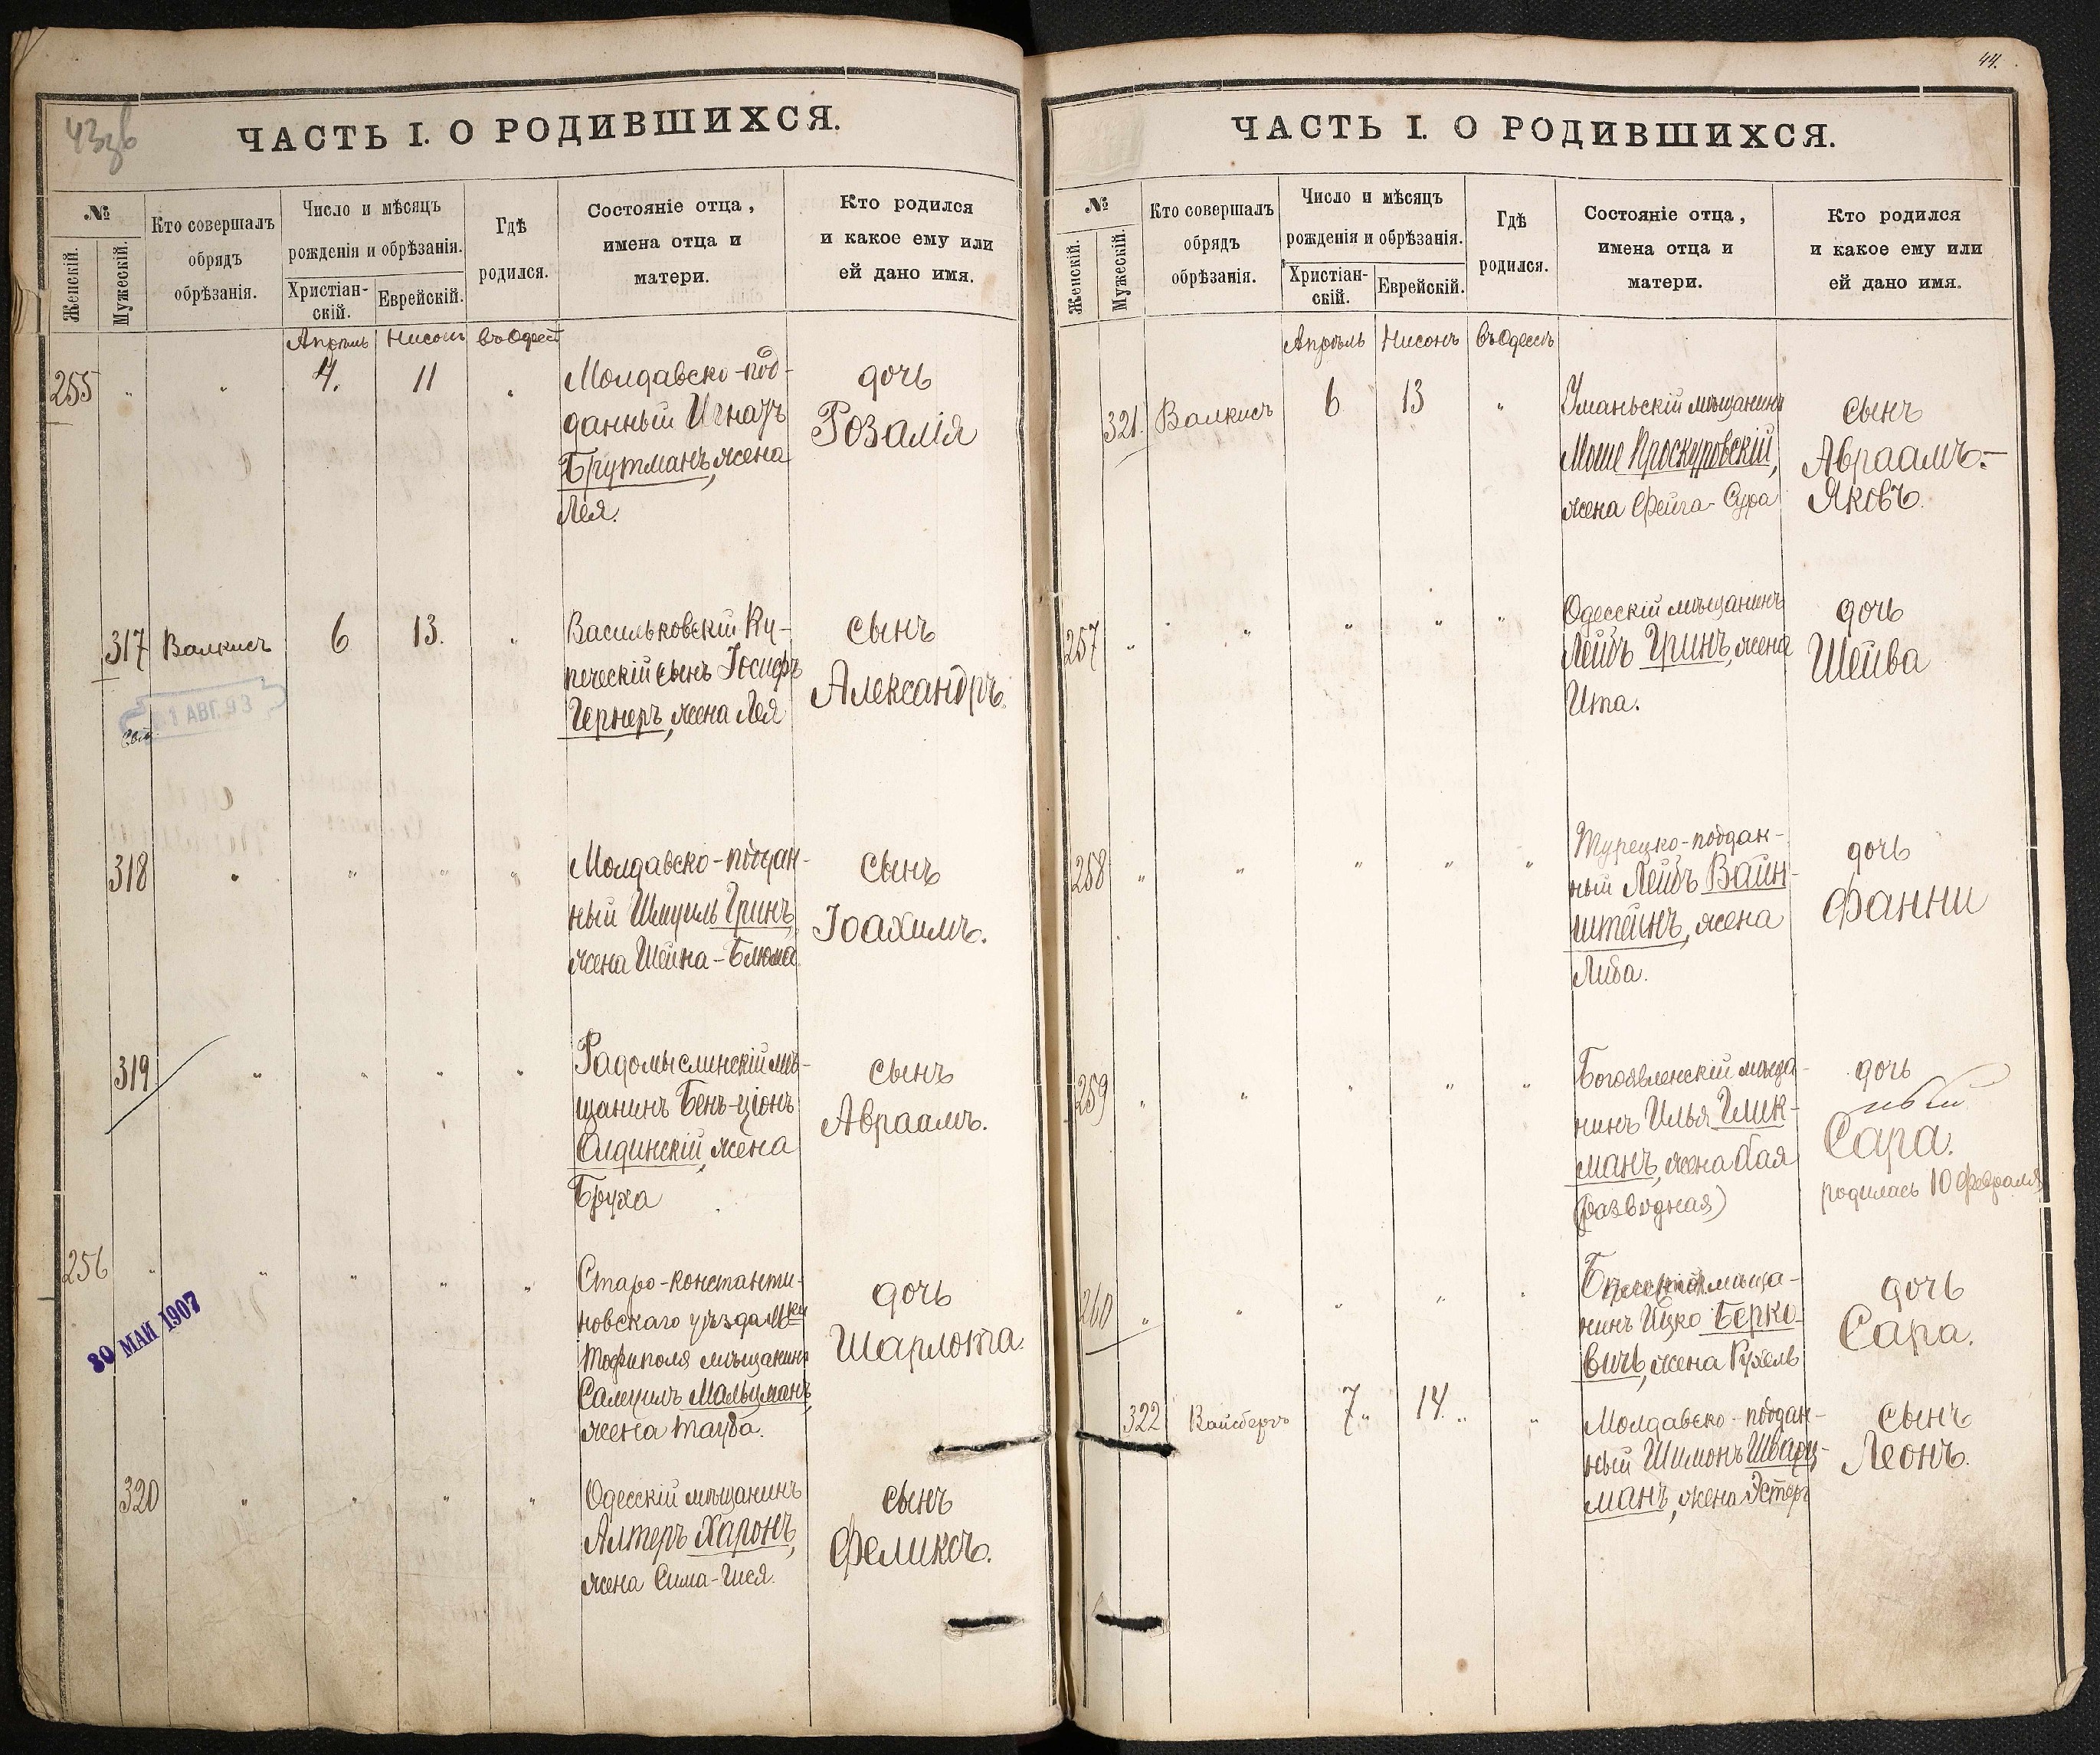 43зв
ЧАСТЬ I. О РОДИВШИХСЯ.
№
Женскій.
Мужескій.
Кто совершалъ
обрядъ
обрѣзанія.
Число и мѣсяцъ
рожденія и обрѣзанія.
Христіан-
скій.
Еврейскій.
Гдѣ
родился.
Состояніе отца,
имена отца и
матери.
Кто родился
и какое ему или
ей дано имя.
Апрѣль Нисонъ въ Одессѣ
255 " " 4. 11 "
Молдавско-под-
данный Игнацъ
Брутманъ, жена
Лея.
дочь
Розалія
317 Валкисъ 6 13. "
Васильковскій Ку-
печескій сынъ Іосифъ
Гернеръ, жена Лея
сынъ
Александръ.
1 АВГ. 93
318 " " " "
Молдавско-поддан-
ный Шмуиль Гринъ,
жена Шейна-Блюма
сынъ
Іоахимъ.
319 " " " "
Радомысльскій мѣ-
щанинъ Бенъ-ціонъ
жена
Бруха
сынъ
Авраамъ.
256 " " " " "
Старо-константи-
новскаго уѣзда Мки
Тофиполя мѣщанинъ
Самуилъ Мальцманъ,
жена Тауба.
дочь
Шарлота.
30 МАЙ 1907
320 " " " "
Одесскій мѣщанинъ
Алтеръ Харонъ,
жена Сима-Гися.
сынъ
Феликсъ.
44.
ЧАСТЬ I. О РОДИВШИХСЯ.
№
Женскій.
Мужескій.
Кто совершалъ
обрядъ
обрѣзанія.
Число и мѣсяцъ
рожденія и обрѣзанія.
Христіан-
скій.
Еврейскій.
Гдѣ
родился.
Состояніе отца,
имена отца и
матери.
Кто родился
и какое ему или
ей дано имя.
Апрѣль Нисонъ въ Одессѣ
321. Валкисъ 6 13 "
Уманьскій мѣщанинъ
Моше Проскуровскій,
жена Фейга-Сура
сынъ
Авраамъ-
Яковъ.
257 " " " " "
Одесскій мѣщанинъ
Лейбъ Гринъ, жена
Ита.
дочь
Шейва
258 " " " " "
Турецко-поддан-
ный Лейбъ Вайн-
штейнъ, жена
Либа.
дочь
Фанни
259 " " " " "
Богоявленскій мѣща-
нинъ Илья Глик-
манъ, жена Хая
(разводная)
дочь
Сара.
родилась 10 февраля
260 " " " " "
мѣща-
нинъ Ицко Берко-
вичъ, жена Рухель
дочь
Сара.
322 Вайсбергъ 7 " 14. " "
Молдавско-поддан-
ный Шимонъ Шварц-
манъ, жена Эстеръ
сынъ
Леонъ.